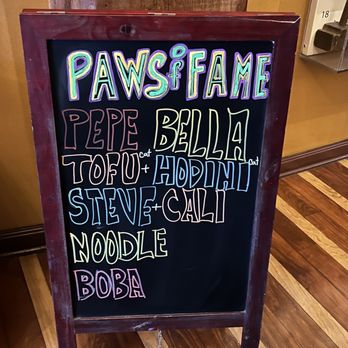 PAWS of FAME
PEPE BELLA
TOFU cat + HODINI cat
STEVE + CALI
NOODLE
BOBA
18